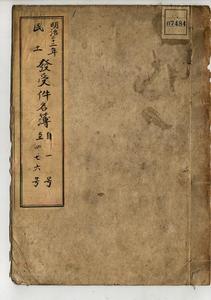 明治三十二年
民工 發受件名簿
自一号
至四七六号
07484